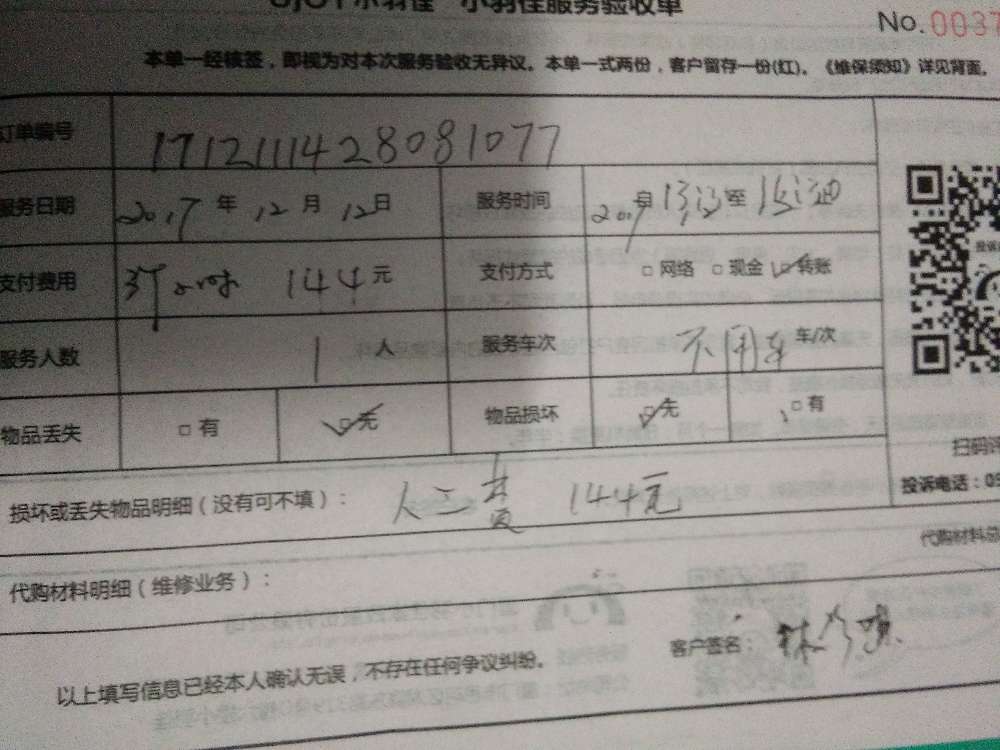 小羽佳服务验收单
No. 0037
本单一经核签，即视为对本次服务验收无异议。本单一式两份，客户留存一份(红)。《维保须知》详见背面。
订单编号 1712111428081077
服务日期 2017年12月12日 服务时间 自 至
支付费用 144元 支付方式 □网络 □现金 □转账
服务人数 1人 服务车次 不用车 车/次
物品丢失 □有 □无 物品损坏 □无 □有
扫码评
损坏或丢失物品明细（没有可不填）： 人工费 144元
投诉电话：05
代购材料总
代购材料明细（维修业务）：
以上填写信息已经本人确认无误，不存在任何争议纠纷。 客户签名：